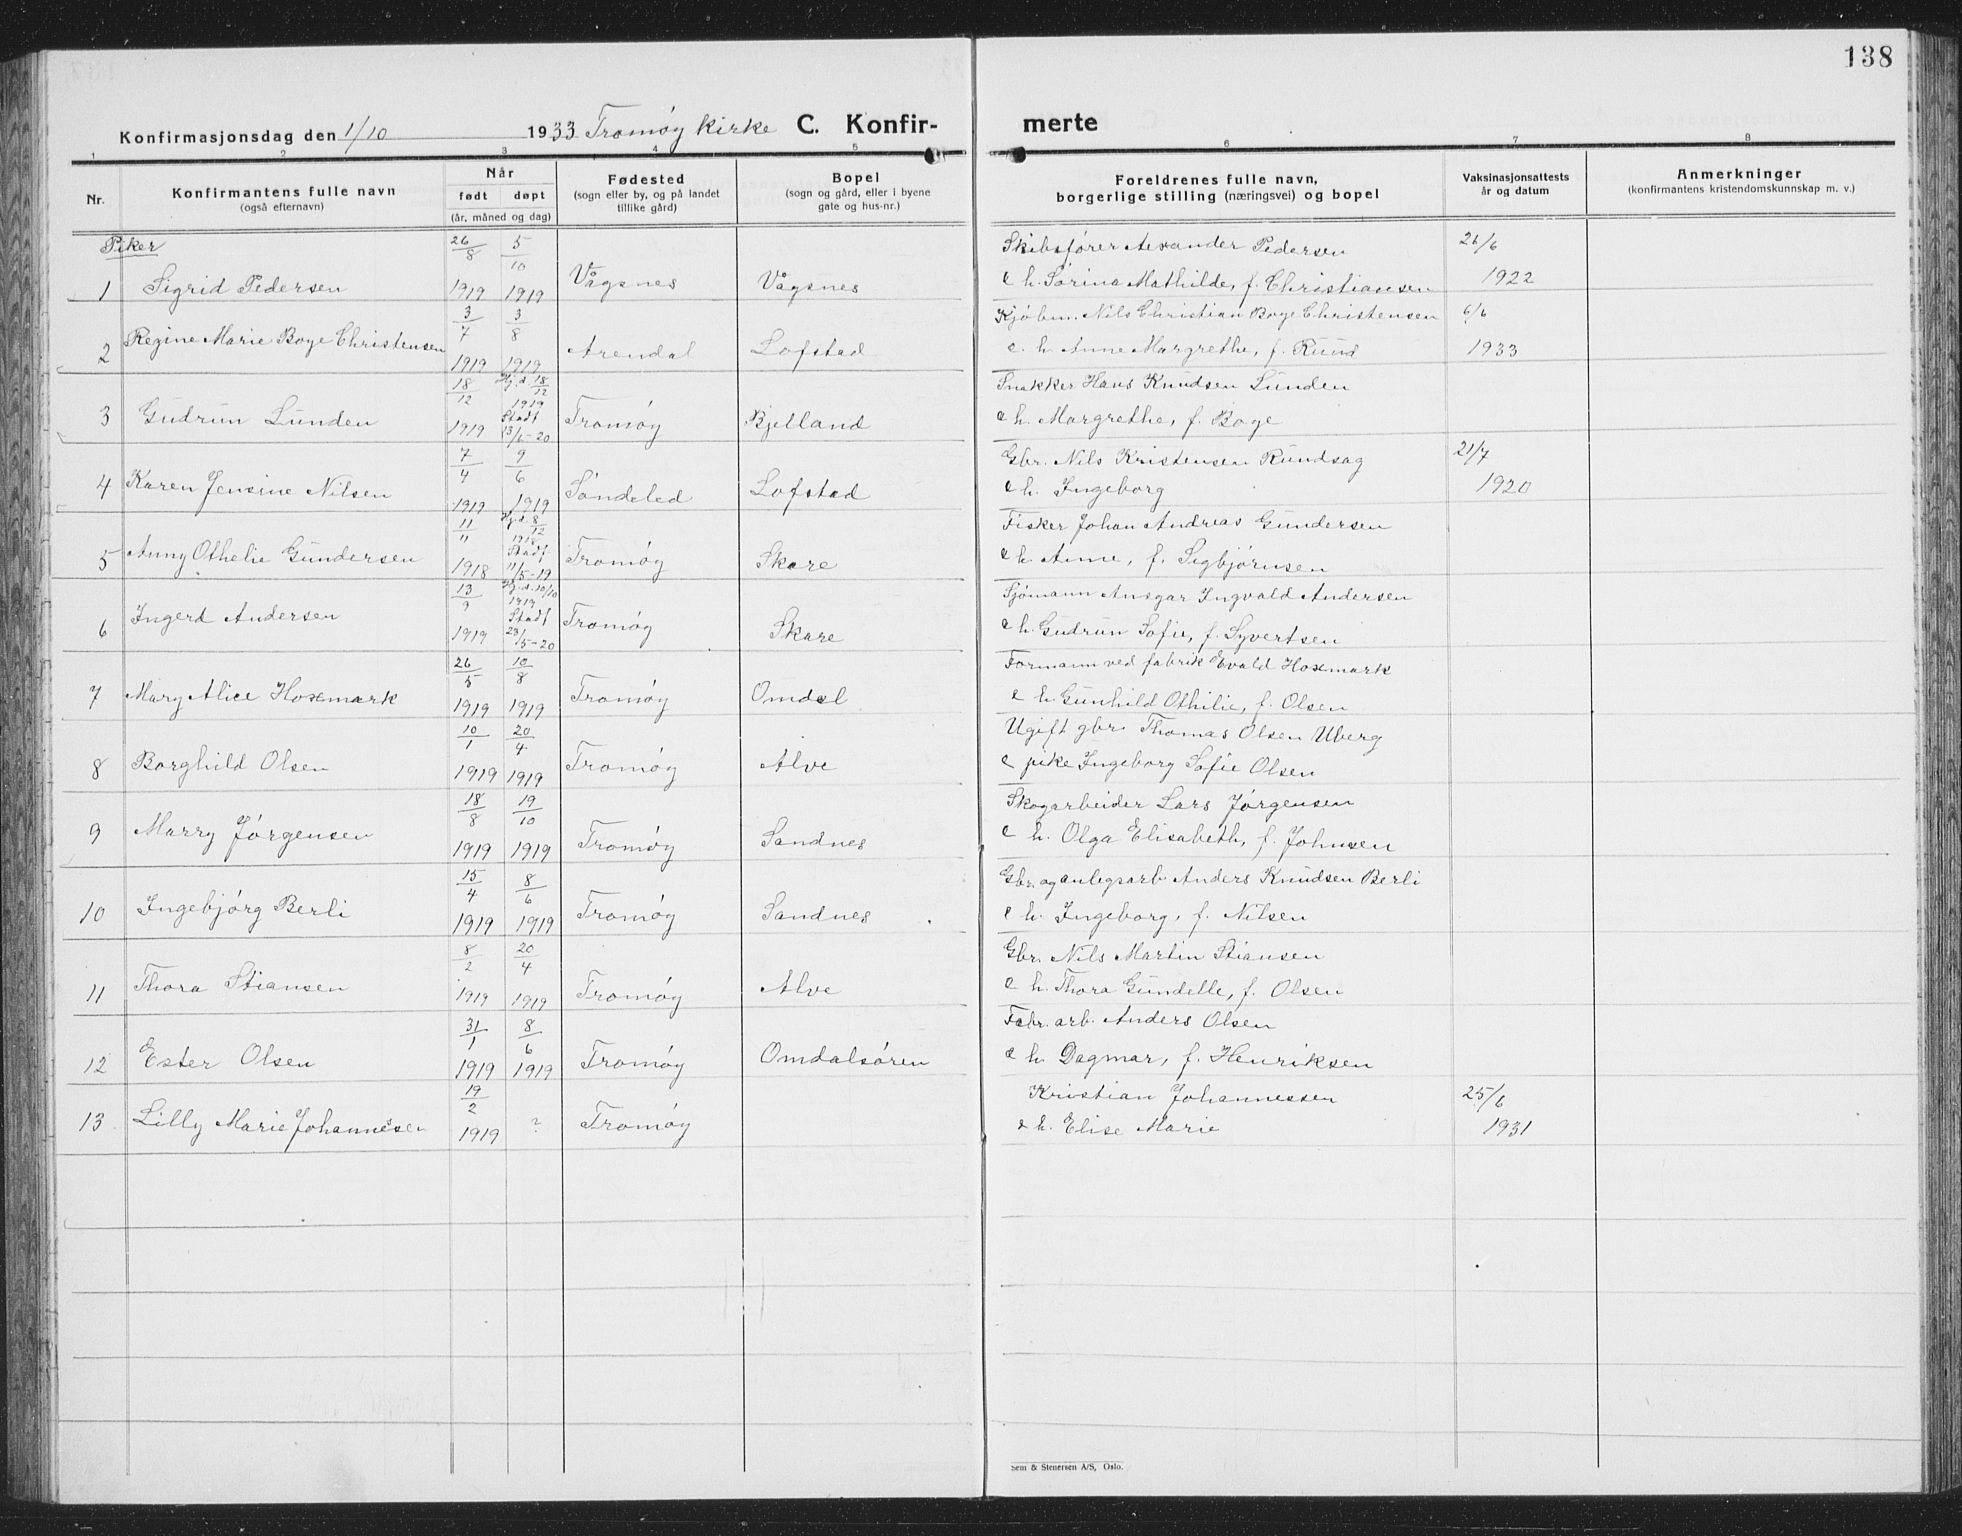 138
Konfirmasjonsdag den 1/10 1933 Tromøy kirke C. Konfir- merte
1 2 3 4 5 6 7 8
Nr. Konfirmantens fulle navn (også efternavn) Når født døpt (år, måned og dag) Fødested (sogn eller by, og på landet tillike gård) Bopel (sogn og gård, eller i byene gate og hus-nr.) Foreldrenes fulle navn, borgerlige stilling (næringsvei) og bopel Vaksinasjonsattests år og datum Anmerkninger (konfirmantens kristendomskunnskap m. v.)
Piker
1 Sigrid Pedersen 26/8 1919 5/10 1919 Vågsnes Vågsnes Skibsfører Alexander Pedersen 26/6
e h. Sørina Mathilde, f. Christiansen 1922
2 Regine Marie Boye Christensen 3/7 1919 3/8 1919 Arendal Lofstad Kjøbm. Nils Christian Boye Christensen 6/6
e. h. Anne Margrethe, f. Rund 1933
3 Gudrun Lunden 18/12 1919 Hj.d. 18/12 1919 Stadf 13/6-20 Tromøy Bjelland Snekker Hans Knudsen Lunden
e h. Margrethe, f. Boye
4 Karen Jensine Nilsen 7/4 1919 9/6 1919 Søndeled Lofstad Gbr. Nils Kristensen Rundsag 21/7
e h. Ingeborg 1920
5 Anny Othelie Gundersen 11/11 1918 Hj.d. 8/12 1918 Stadf 11/5-19 Tromøy Skare Fisker Johan Andreas Gundersen
e h. Anne, f. Sigbjørnsen
6 Ingerd Andersen 13/9 1919 Hj.d. 10/10 1919 Stadf 23/5-20 Tromøy Skare Sjømann Ansgar Ingvald Andersen
e h. Gudrun Sofie, f. Syvertsen
7 Mary Alice Hoxmark 26/5 1919 10/8 1919 Tromøy Omdal Formann ved fabrik Evald Hoxmark
e h. Gunhild Othilie, f. Olsen
8 Borghild Olsen 10/1 1919 20/4 1919 Tromøy Alve Ugift gbr. Thomas Olsen Uberg
e pike Ingeborg Sofie Olsen
9 Marry Jørgensen 18/8 1919 19/10 1919 Tromøy Sandnes Skogarbeider Lars Jørgensen
e h. Olga Elisabeth, f. Johnsen
10 Ingebjørg Berli 15/4 1919 8/6 1919 Tromøy Sandnes Gbr. og anlegsarb Anders Knudsen Berli
e h. Ingeborg, f. Nilsen
11 Thora Stiansen 8/2 1919 20/4 1919 Tromøy Alve Gbr. Nils Martin Stiansen
e h. Thora Gundelle, f. Olsen
12 Ester Olsen 31/1 1919 8/6 1919 Tromøy Omdalsøren Fabr. arb. Anders Olsen
e h. Dagmar, f. Henriksen
13 Lilly Marie Johannesen 19/2 1919 ? Tromøy Kristian Johannessen 25/6
e h. Elise Marie 1931
Sem & Stenersen A/S, Oslo.